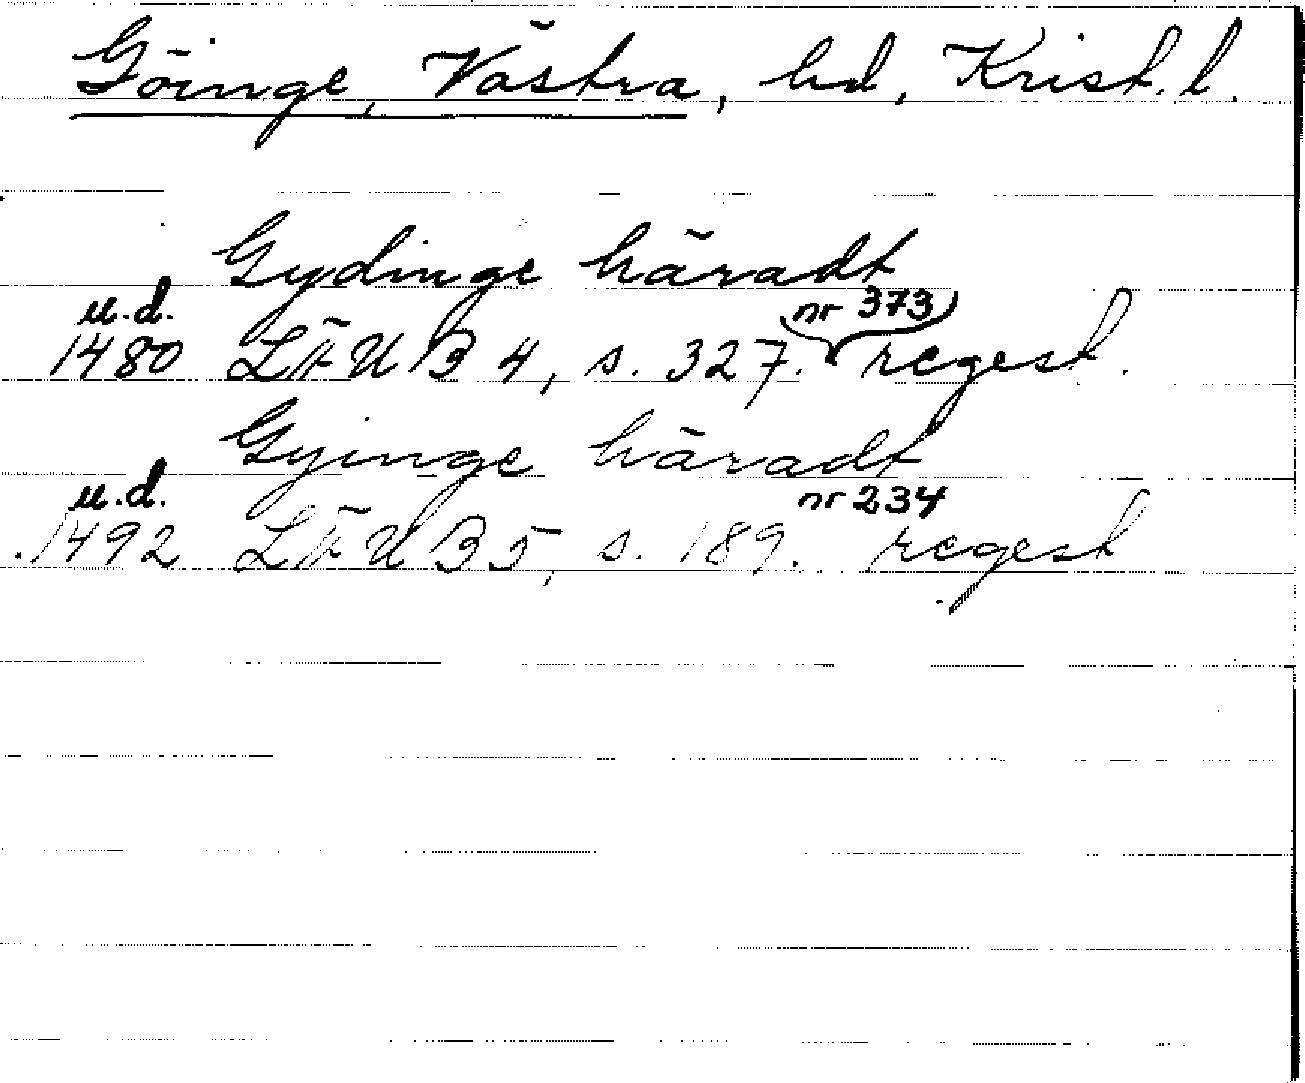 Göinge, Västra, hd, Krist. l.
Gydinge häradt
u.d. nr 373
1480 LÄUB 4, s. 327. regest.
Gyinge häradt
u.d. nr 234
1492 LÄUB 5, s. 189. regest